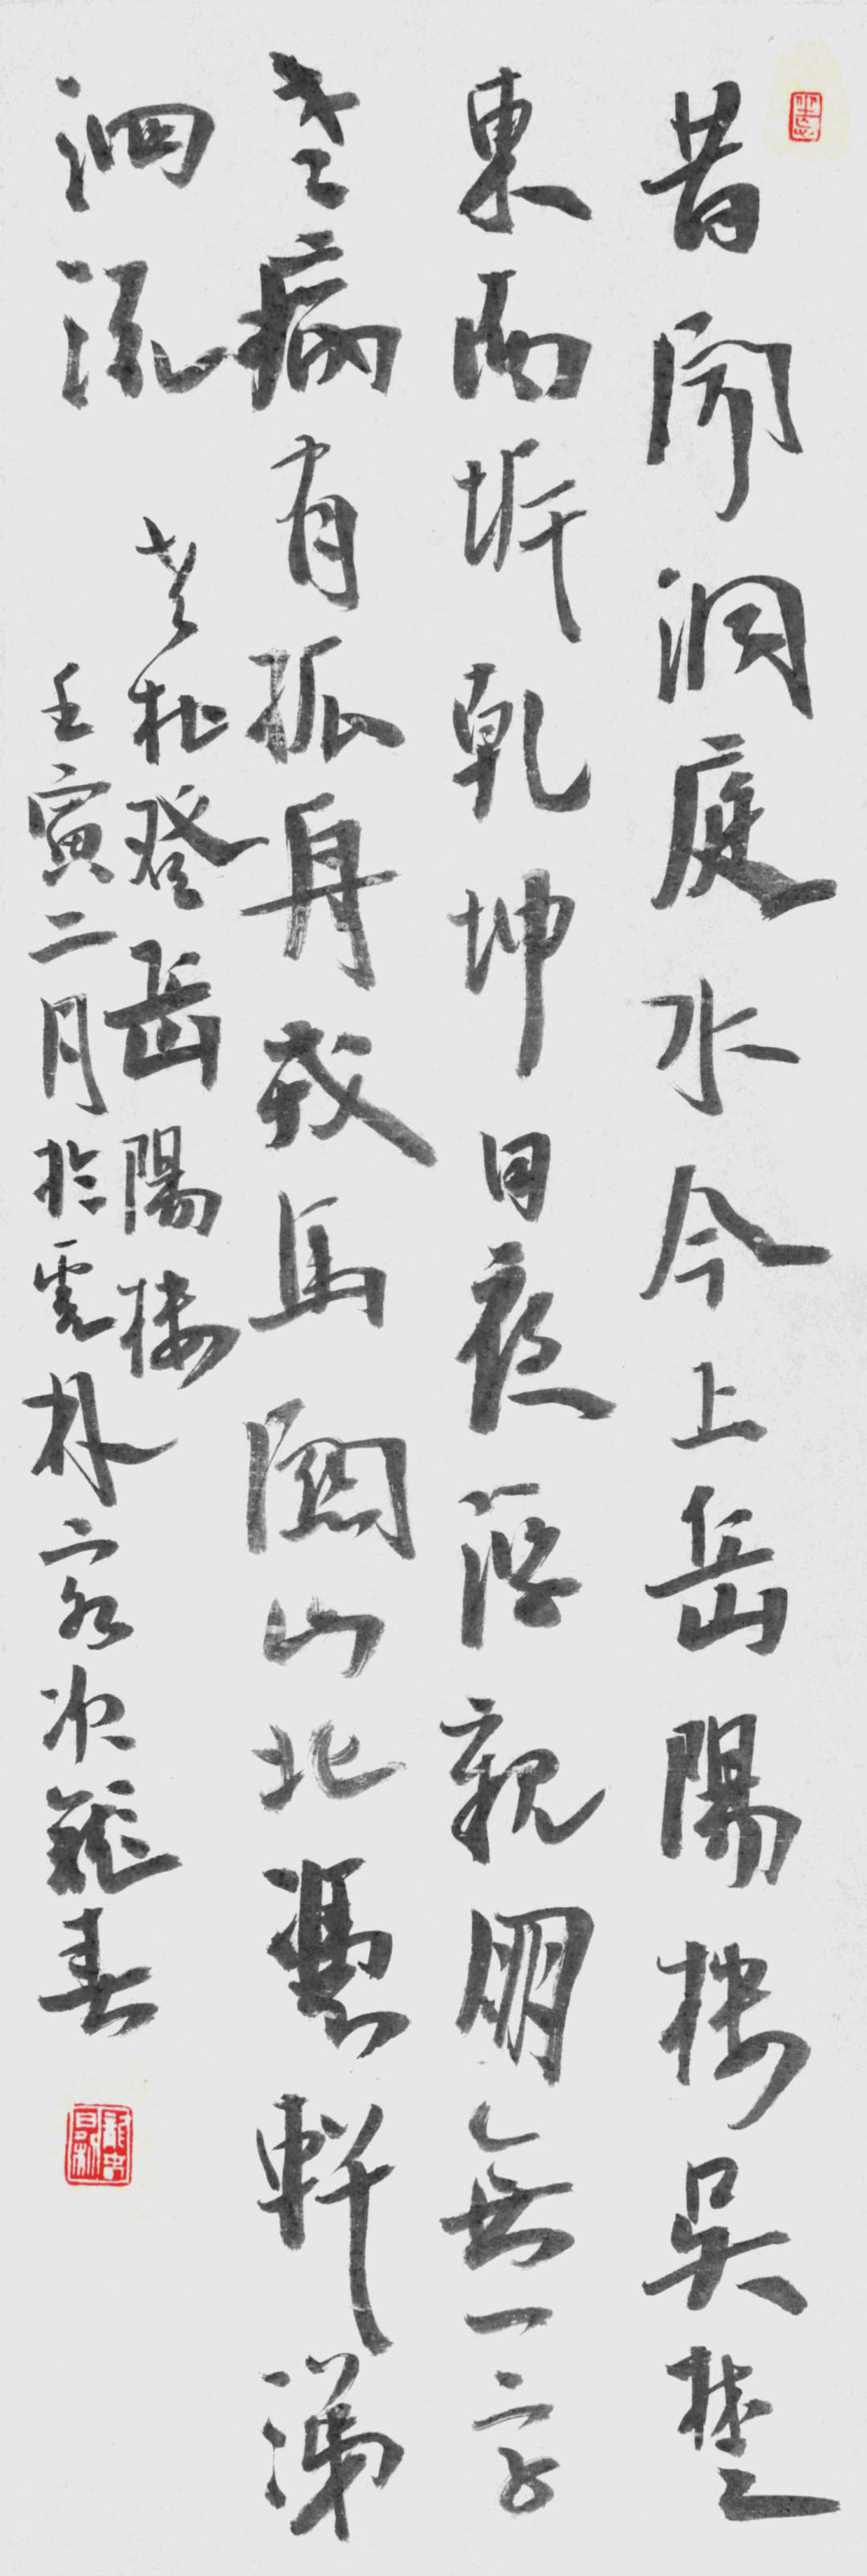 昔聞洞庭水今上岳陽樓吳楚
東南坼乾坤日夜浮親朋無一字
老病有孤舟戎馬關山北憑軒涕
泗流
老杜登岳陽樓
壬寅二月於雲林客次龍春